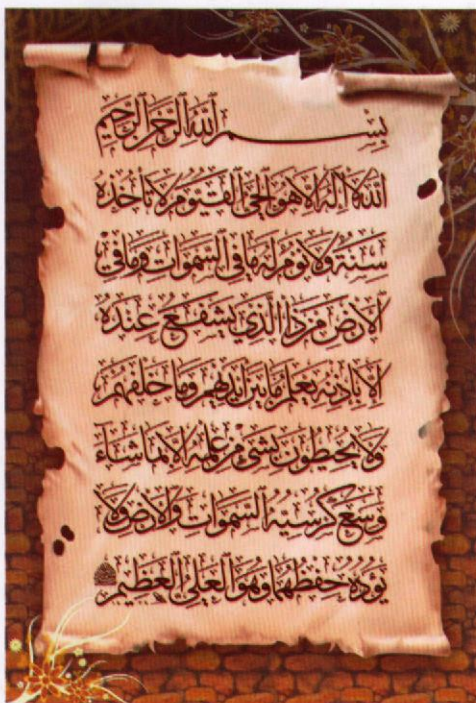 بِسْمِ ٱللَّهِ ٱلرَّحْمَٰنِ ٱلرَّحِيمِ
ٱللَّهُ لَا إِلَٰهَ إِلَّا هُوَ ٱلْحَيُّ ٱلْقَيُّومُ لَا تَأْخُذُهُ
سِنَةٌ وَلَا نَوْمٌ لَهُ مَا فِي ٱلسَّمَوَاتِ وَمَا فِي
ٱلْأَرْضِ مَن ذَا ٱلَّذِي يَشْفَعُ عِنْدَهُ
إِلَّا بِإِذْنِهِ يَعْلَمُ مَا بَيْنَ أَيْدِيهِمْ وَمَا خَلْفَهُمْ
وَلَا يُحِيطُونَ بِشَيْءٍ مِنْ عِلْمِهِ إِلَّا بِمَا شَاءَ
وَسِعَ كُرْسِيُّهُ ٱلسَّمَوَاتِ وَٱلْأَرْضَ وَلَا
يَؤُدُهُ حِفْظُهُمَا وَهُوَ ٱلْعَلِيُّ ٱلْعَظِيمُ